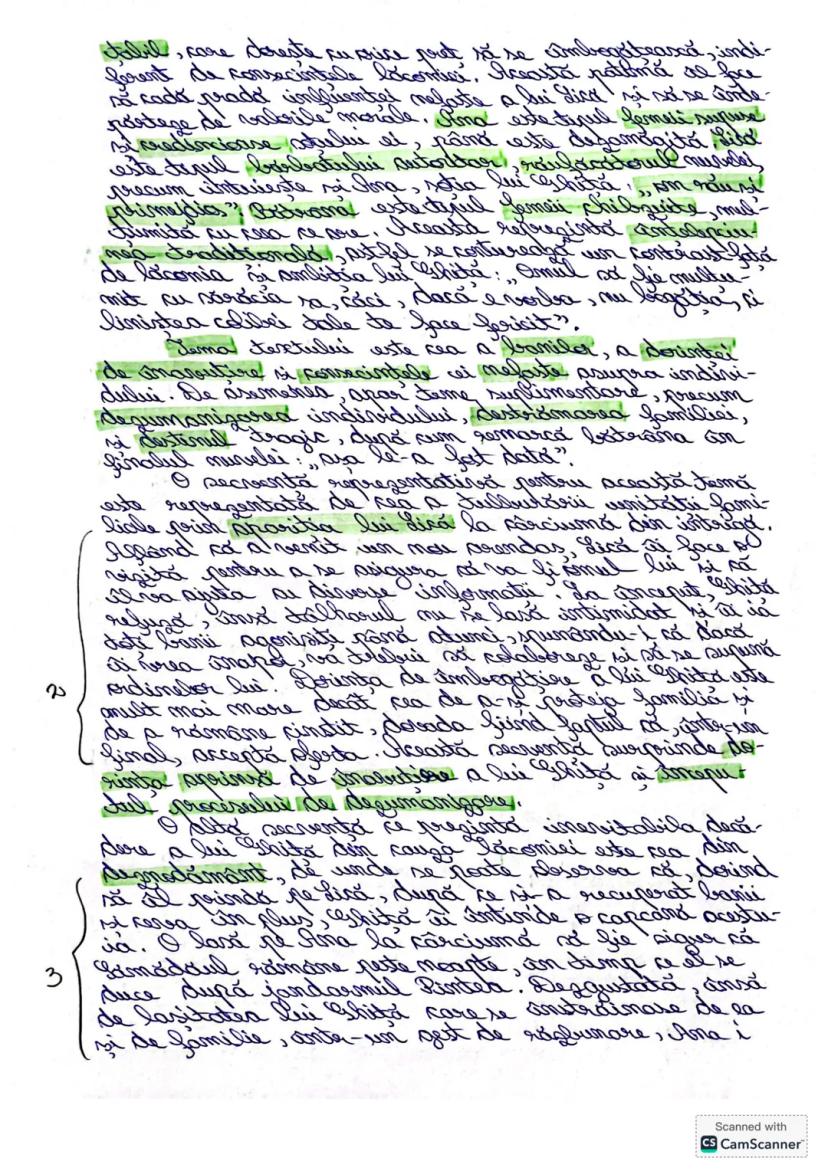 tabil, care dorește cu orice preț să se îmbogățească, indi-
ferent de consecințele lăcomiei. Această patimă îl face
să cadă pradă influenței nefaste a lui Lică și să se înde-
părteze de valorile morale. Ana este tipul femeii supuse
și credincioase soțului ei, până este dezamăgită. Lică
este tipul bărbatului autoritar, răufăcătorul nuvelei,
precum intuiește și Ana, soția lui Ghiță: „om rău și
primejdios". Bătrâna este tipul femeii chibzuite, mul-
țumită cu ceea ce are. Aceasta reprezintă înțelepciu-
nea tradițională, astfel se conturează un contrast față
de lăcomia și ambiția lui Ghiță: „Omul să fie mulțu-
mit cu sărăcia sa, căci, dacă e vorba, nu bogăția, ci
liniștea colibei tale te face fericit".
Tema textului este cea a banilor, a dorinței
de înavuțire și consecințele ei nefaste asupra indivi-
dului. De asemenea, apar teme suplimentare, precum
dezumanizarea individului, destrămarea familiei,
și destinul tragic, după cum remarcă bătrâna în
finalul nuvelei: „așa le-a fost dată".
O secvență reprezentativă pentru această temă
este reprezentată de cea a tulburării unității fami-
liale prin apariția lui Lică la cârciumă din intrigă.
Aflând că a venit un nou arendaș, Lică îi face o
vizită pentru a se asigura că va fi omul lui și că
îl va ajuta cu diverse informații. La început, Ghiță
refuză, însă tâlharul nu se lasă intimidat și îi ia
toți banii agonisiți până atunci, spunându-i că dacă
îi vrea înapoi, va trebui să colaboreze și să se supună
ordinelor lui. Dorința de îmbogățire a lui Ghiță este
mult mai mare decât cea de a-și proteja familia și
de a rămâne cinstit, dovada fiind faptul că, într-un
final, acceptă oferta. Această secvență surprinde do-
rința aprinsă de înavuțire a lui Ghiță și începu-
tul procesului de dezumanizare.
O altă secvență ce prezintă inevitabila decă-
dere a lui Ghiță din cauza lăcomiei este cea din
deznodământ, de unde se poate observa că, dorind
să îl prindă pe Lică, după ce și-a recuperat banii
și ceva în plus, Ghiță îi întinde o capcană acestu-
ia. O lasă pe Ana la cârciumă să fie sigur că
Sămădăul rămâne peste noapte, în timp ce el se
duce după jandarmul Pintea. Dezgustată, însă
de lașitatea lui Ghiță care se înstrăinase de ea
și de familie, într-un gest de răzbunare, Ana i
2
3
Scanned with
CS CamScanner